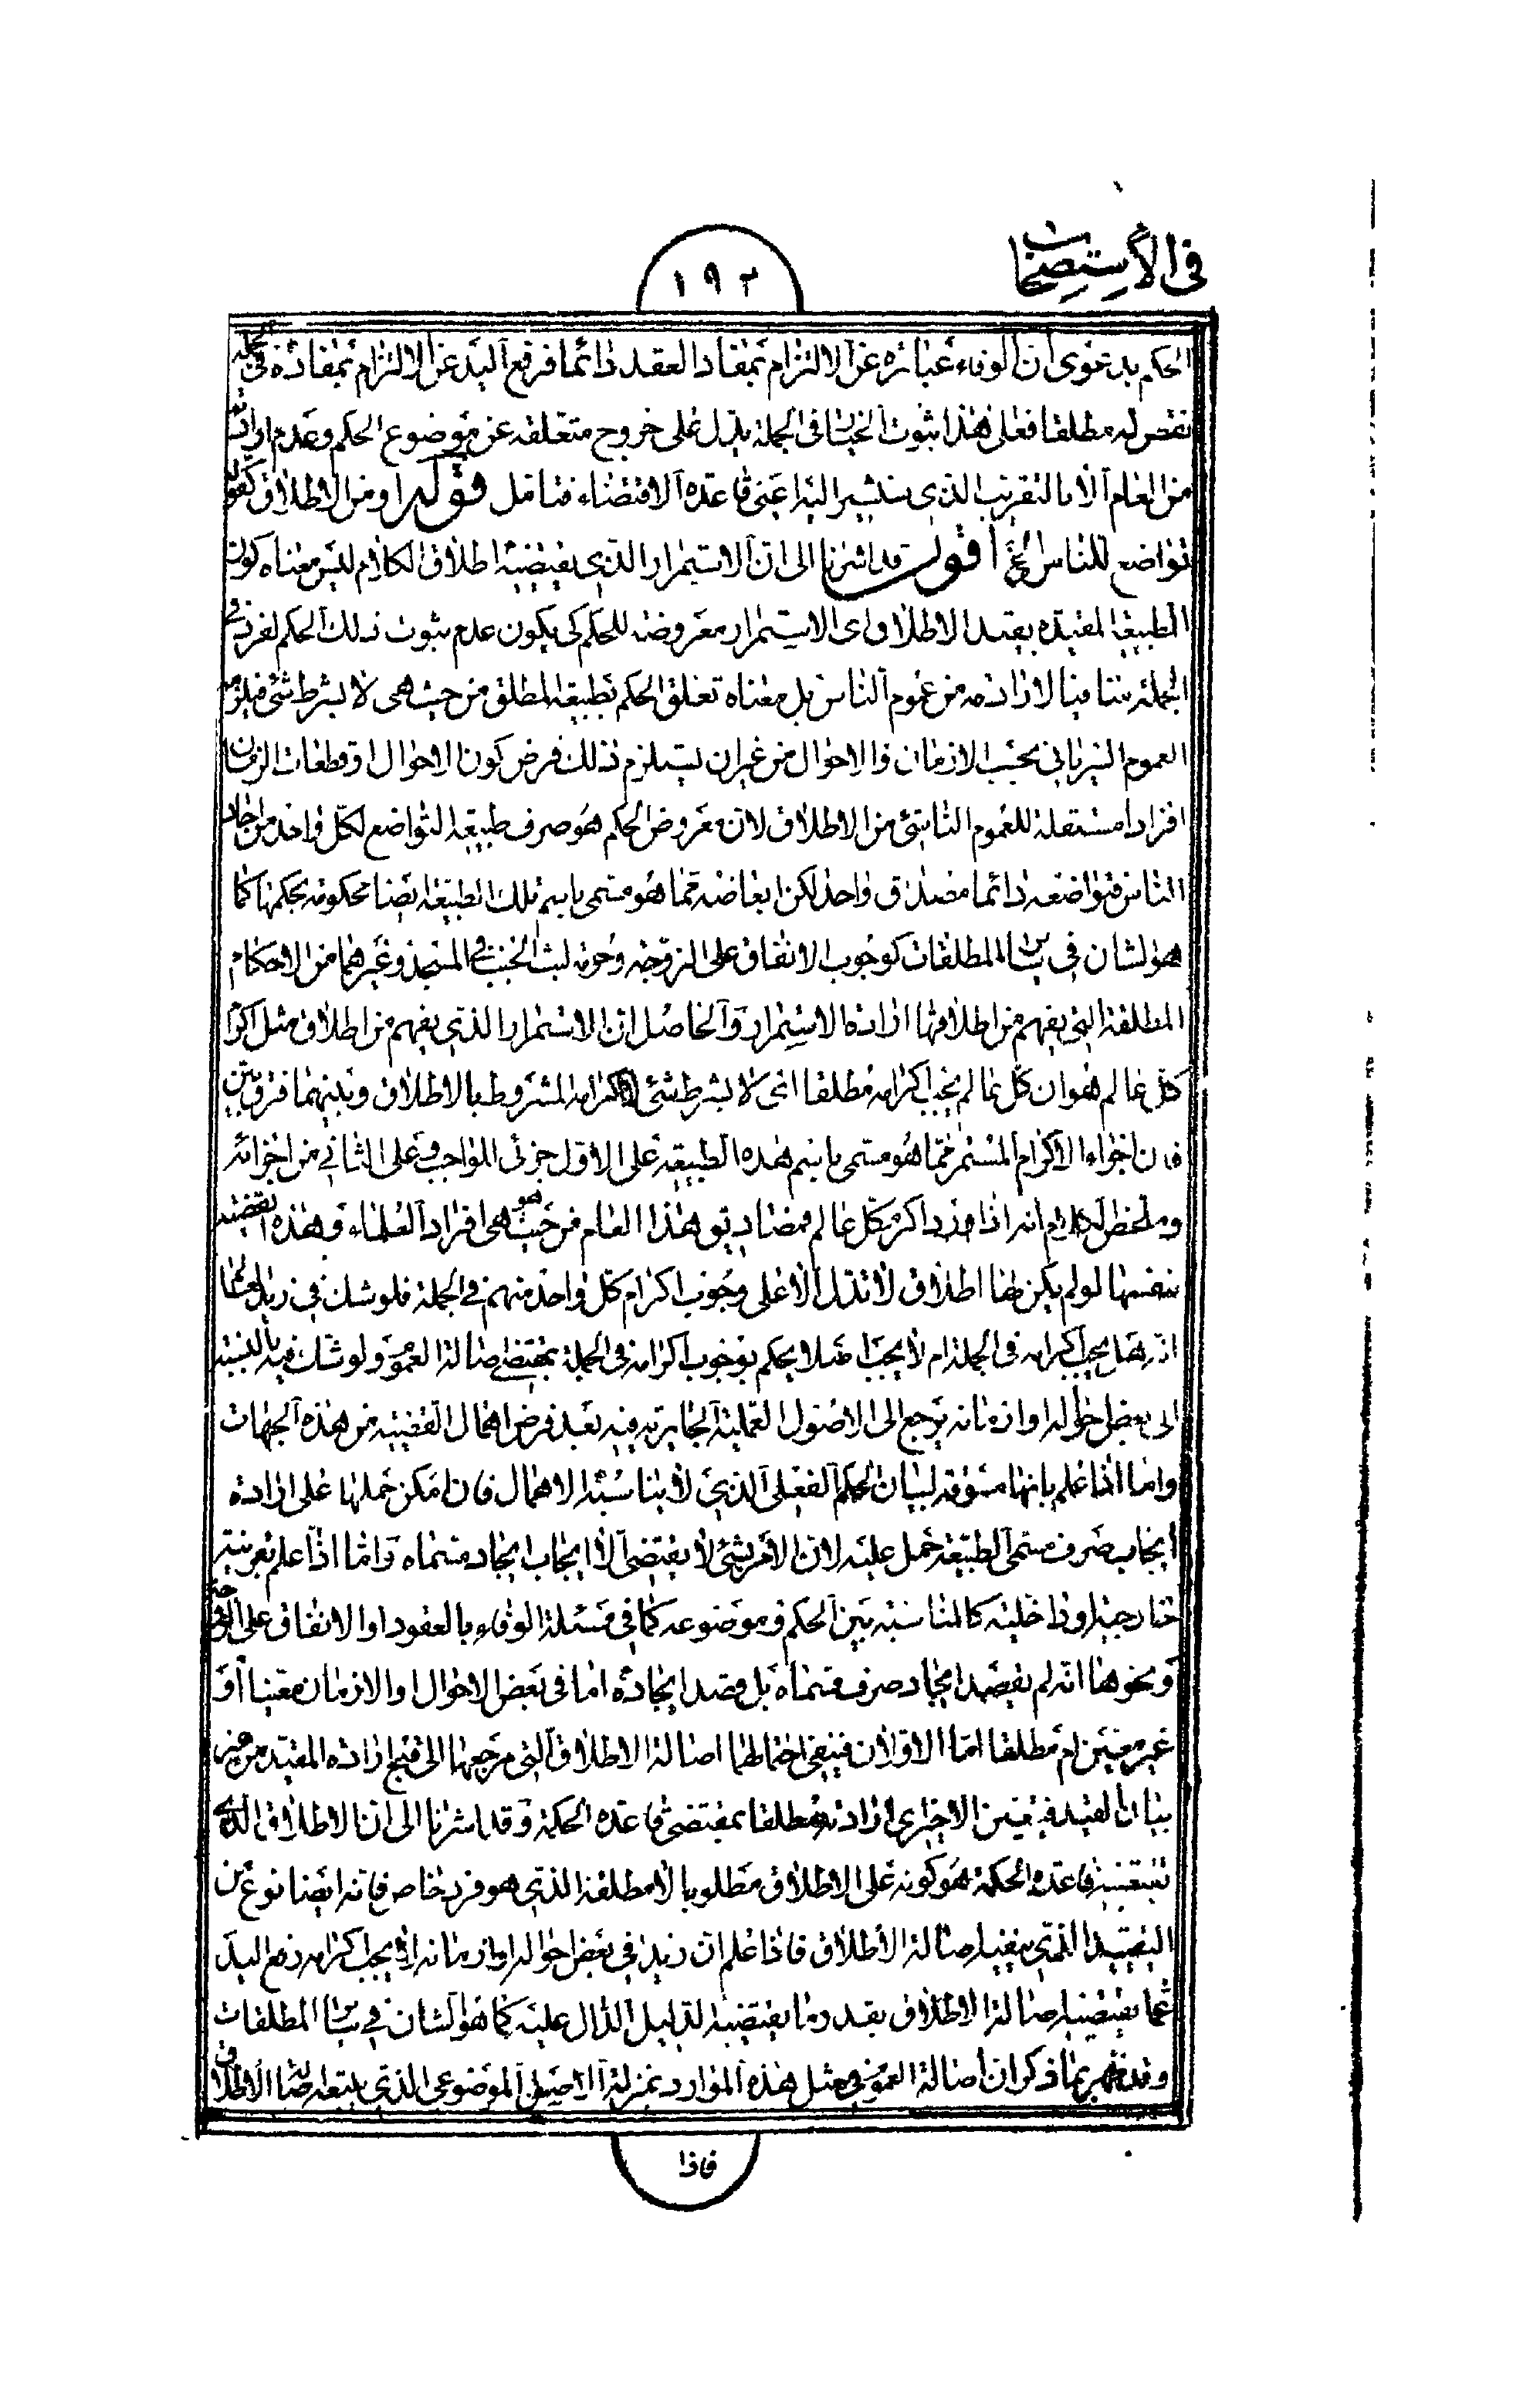 في الاستصحاب
١٩٢
الحكم بدعوى ان الوفاء عبارة عن الالتزام بمفاد العقد دائما فرفع اليد عن الالتزام بمفاده في الجملة
نقض له مطلقا فعلى هذا ثبوت الخيار في الجملة يدل على خروج متعلقه عن موضوع الحكم وعدم ارادته
من العام الا بالتقريب الذي سنشير اليه اعنى قاعدة الاقتضاء فتامل قوله او من الاطلاق كقوله
تواضع للناس الخ اقول قد اشرنا الى ان الاستمرار الذي يقتضيه اطلاق الكلام ليس معناه كون
الطبيعة المقيدة بقيد الاطلاق اى الاستمرار معروضة للحكم كى يكون عدم ثبوت ذلك الحكم لفرد في
الجملة منافيا لارادته من عموم الناس بل معناه تعلق الحكم بطبيعة المطلق من حيث هى لا بشرط شئ فيلزمه
العموم السرياني بحسب الازمان والاحوال من غير ان يستلزم ذلك فرض كون الاحوال او قطعات الزمان
افرادا مستقلة للعموم الناشئ من الاطلاق لان معروض الحكم هو صرف طبيعة التواضع لكل واحد من احاد
الناس فتواضعه دائما مصداق واحد لكن ابعاضه مما هو مسمى باسم تلك الطبيعة ايضا محكومة بحكمها كما
هو الشان في ساير المطلقات كوجوب الانفاق على الزوجة وحرمة لبث الجنب في المسجد وغيرهما من الاحكام
المطلقة التي يفهم من اطلاقها ارادة الاستمرار والحاصل ان الاستمرار الذي يفهم من اطلاق مثل اكرم
كل عالم هو ان كل عالم يجب اكرامه مطلقا اى لا بشرط شئ لا اكرامه المشروط بالاطلاق وبينهما فرق بين
فان اجزاء الاكرام المستمر مما هو مسمى باسم هذه الطبيعة على الاول جزئى للواجب وعلى الثاني من اجزائه
وملخص الكلام انه اذا ورد اكرم كل عالم فمصاديق هذا العام من حيث هو هى افراد العلماء وهذه القضية
بنفسها لو لم يكن لها اطلاق لا تدل الا على وجوب اكرام كل واحد منهم في الجملة فلو شك في زيد العالم
انه هل يجب اكرامه فى الجملة ام لا يجب اصلا يحكم بوجوب اكرامه في الجملة بمقتضى اصالة العموم ولو شك فيه بالنسبة
الى بعض احواله وازمانه يرجع الى الاصول العملية الجارية فيه بعد فرض اهمال القضية من هذه الجهات
واما اذا علم بانها مسوقة لبيان الحكم الفعلى الذي لا يناسبه الاهمال فان امكن حملها على ارادة
ايجاب صرف مسمى الطبيعة حمل عليه لان الامر بشئ لا يقتضى الا ايجاب ايجاد مسماه واما اذا علم بقرينة
خارجية او داخلية كالمناسبة بين الحكم وموضوعه كما في مسئلة الوفاء بالعقود او الانفاق على الزوجة
ونحوها انه لم يقصد ايجاد صرف مسماه بل قصد ايجاده اما فى بعض الاحوال او الازمان معينا او
غير معين ام مطلقا اما الاولان فينفى احتمالهما اصالة الاطلاق التي مرجعها الى قبح ارادة المقيد من غير
بيان القيد فيتعين الاخير اى ارادته مطلقا بمقتضى قاعدة الحكمة وقد اشرنا الى ان الاطلاق الذي
تقتضيه قاعدة الحكمة هو كونه على الاطلاق مطلوبا لا مطلقه الذي هو فرد خاص فانه ايضا نوع من
التقييد الذي ينفيه اصالة الاطلاق فاذا علم ان زيدا في بعض احواله او ازمانه لا يجب اكرامه رفع اليد
عما يقتضيه اصالة الاطلاق بقدر ما يقتضيه الدليل الدال عليه كما هو الشان في ساير المطلقات
وقد ظهر بما ذكر ان اصالة العموم في مثل هذه الموارد بمنزلة الاصل الموضوعى الذي يتبعه اصالة الاطلاق
فاذا